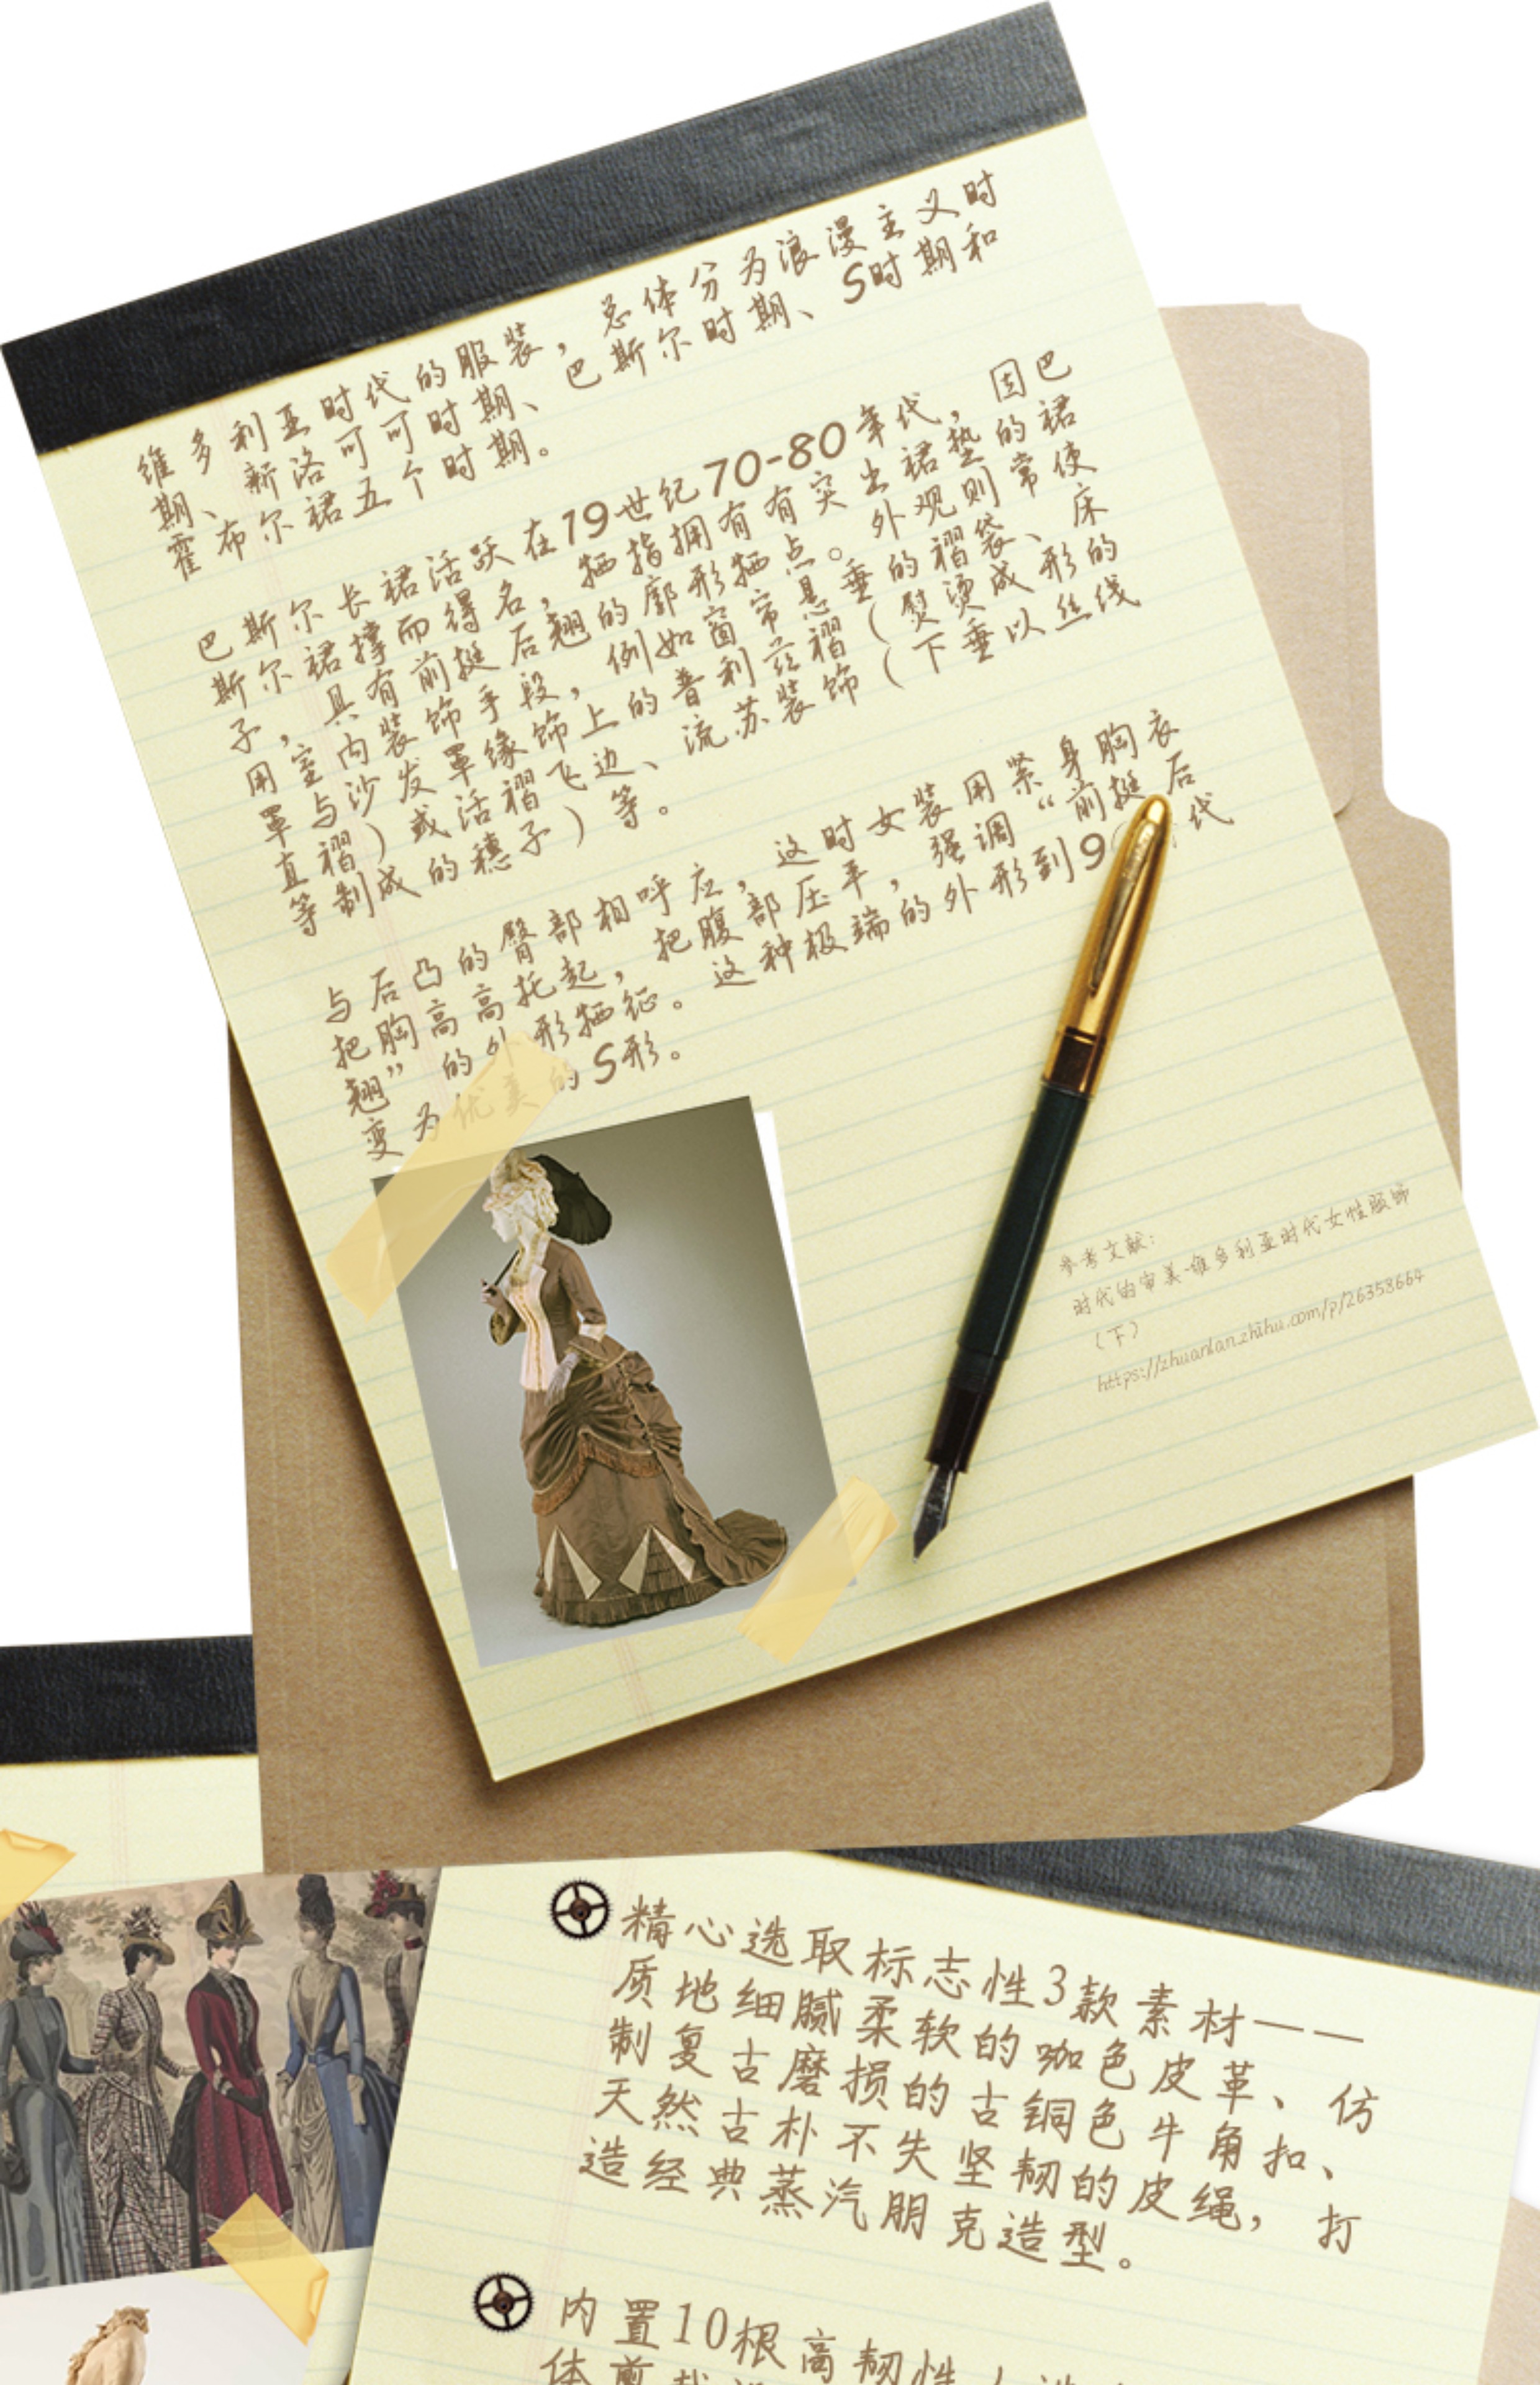 维多利亚时代的服装，总体分为浪漫主义时
期、新洛可可时期、巴斯尔时期、S时期和
霍布尔裙五个时期。
巴斯尔长裙活跃在19世纪70-80年代，因巴
斯尔裙撑而得名，牺指拥有有突出裙垫的裙
子，具有前挺后翘的廓形牺点。外观则常使
用室内装饰手段，例如窗帘悬垂的褶袋、床
罩与沙发罩缘饰上的普利兹褶（熨烫成形的
直褶）或活褶飞边、流苏装饰（下垂以丝线
等制成的穗子）等。
与后凸的臀部相呼应，这时女装用紧身胸衣
把胸高高托起，把腹部压平，强调“前挺后
翘”的外形牺征。这种极端的外形到9代
变为优美的S形。
参考文献：
时代的审美-维多利亚时代女性服饰
（下）
https://zhuanlan.zhihu.com/p/26358664
精心选取标志性3款素材——
质地细腻柔软的咖色皮革、仿
制复古磨损的古铜色牛角扣、
天然古朴不失坚韧的皮绳，打
造经典蒸汽朋克造型。
内置10根高韧性